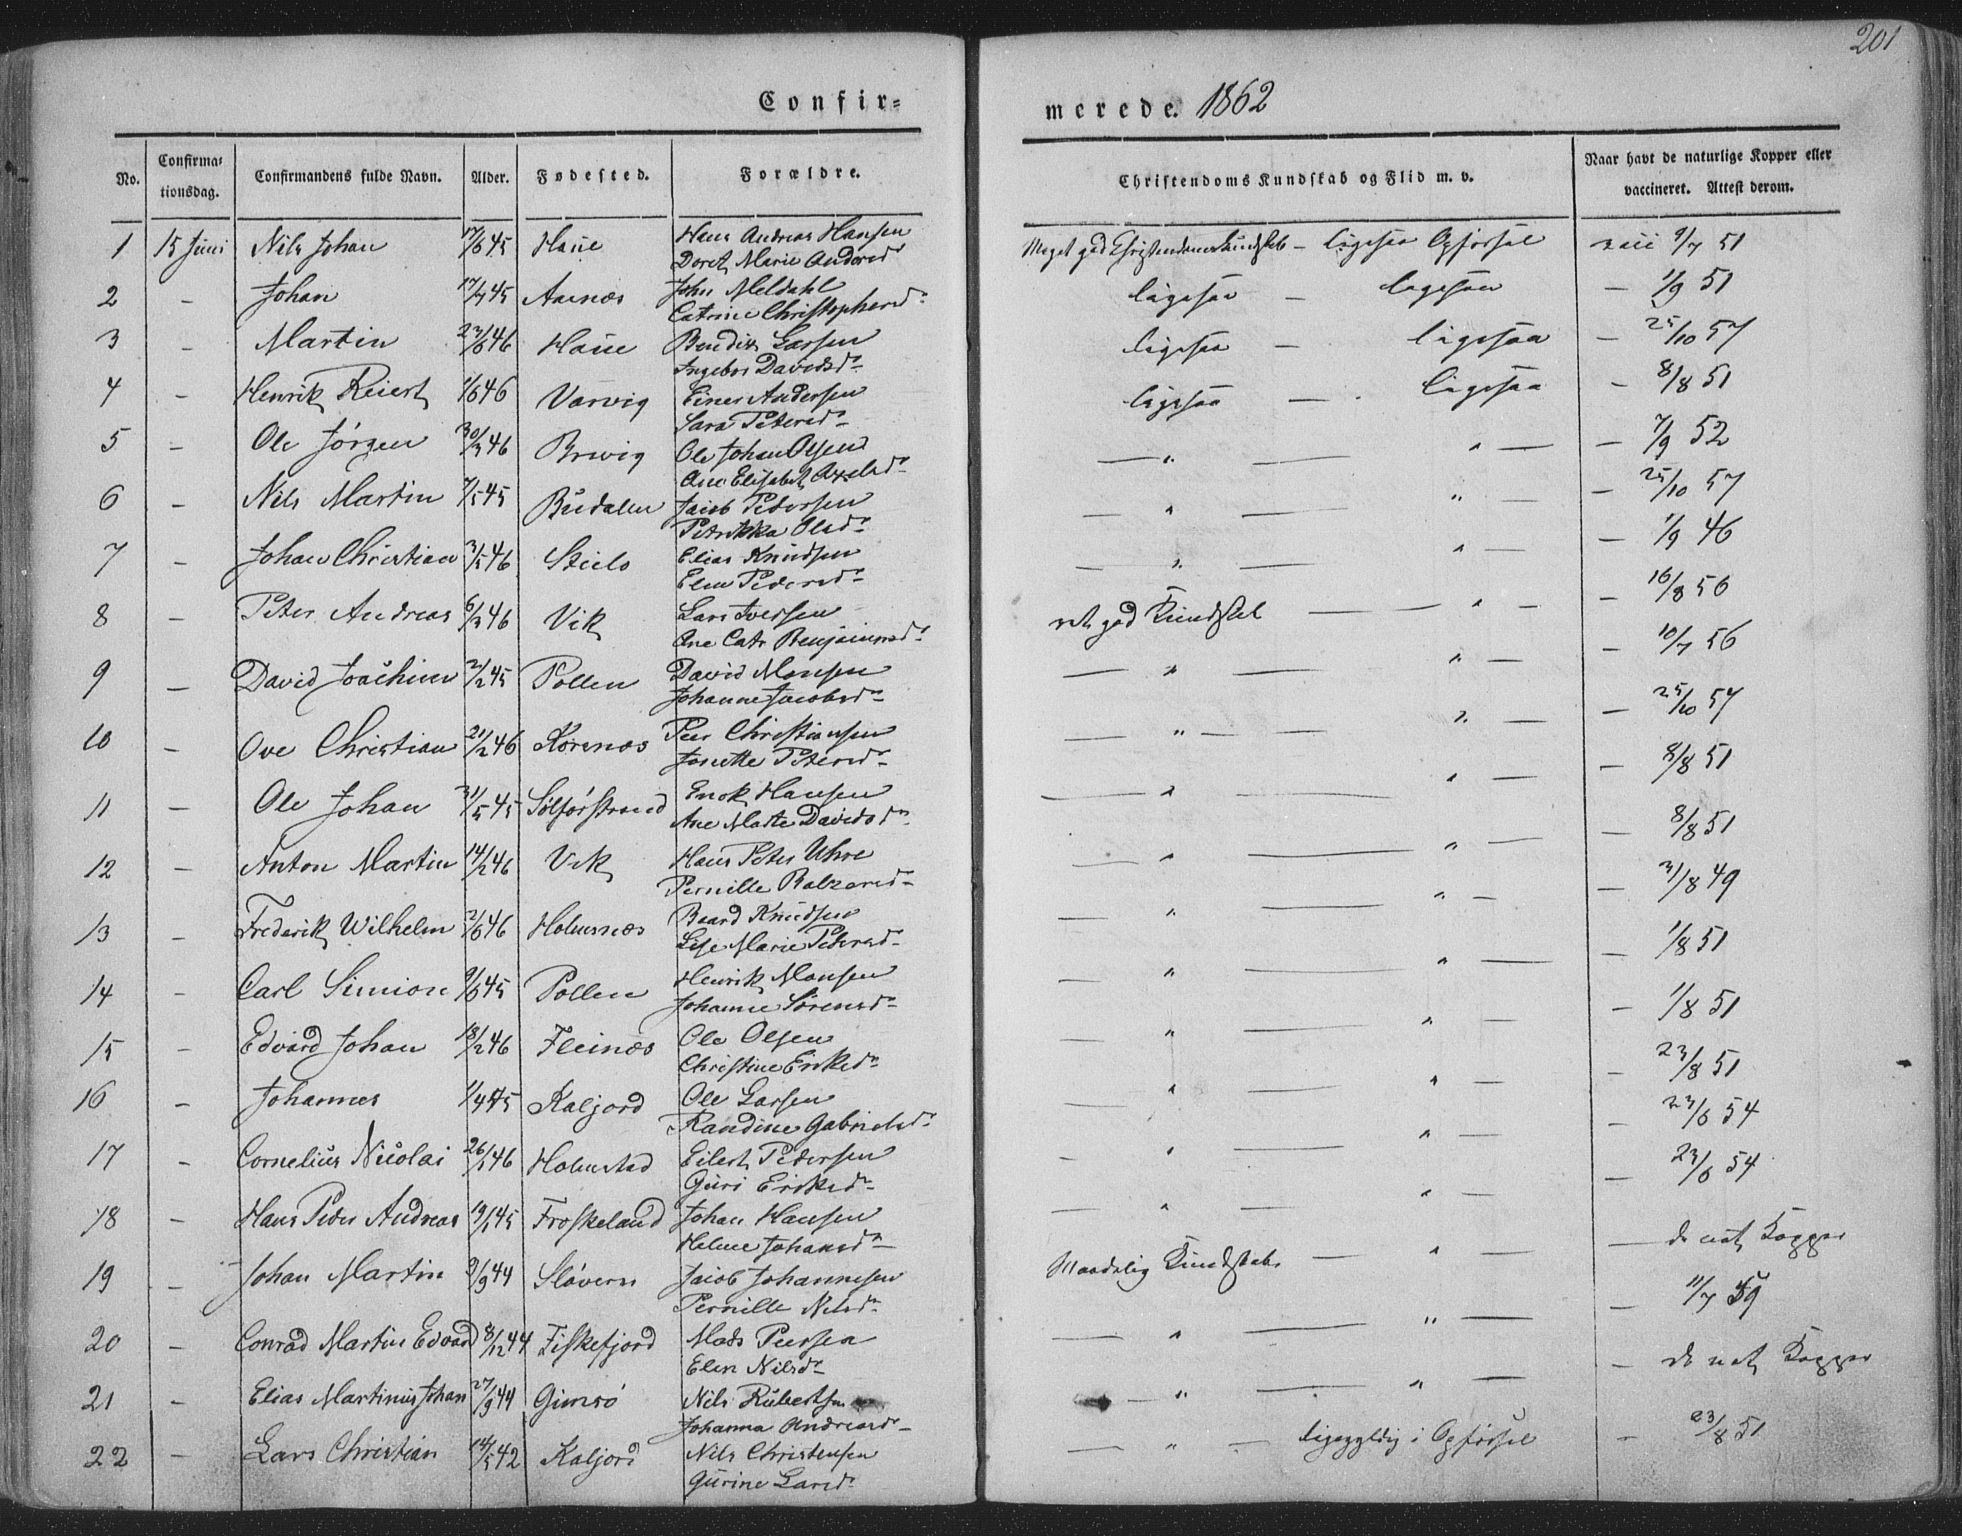 201
Confir= merede. 1862
No. Confirmationsdag. Confirmandens fulde Navn. Alder. Fødested. Forældre. Christendoms Kundskab og Flid m. v. Naar havt de naturlige Kopper eller vaccineret. Attest derom.
1 15 Juni Nils Johan 17/6 45 Haue Hans Andreas Hansen Meget god Christendomskundskab – ligesaa Opførsel vacc 9/7 51
Doret Marie Andersd
2 – Johan 17/7 45 Aanæs John Meldahl ligesaa – ligesaa – 1/9 51
Catrine Christophersd
3 – Martin 23/6 46 Haue Bendix Larsen ligesaa – ligesaa – 25/10 57
Ingebor Davidsd
4 – Henrik Reiert 1/6 46 Varvig Einer Andersen ligesaa – ligesaa – 8/8 51
Sara Petersd
5 – Ole Jørgen 30/3 46 Brevig Ole Johan Olsen — " — " — – 7/9 52
Ane Elisabet Axelsd
6 – Nils Martin 7/5 45 Budalen Jacob Pedersen — " — " — – 25/10 57
Petrikka Olsd
7 – Johan Christian 3/5 46 Steilo Elias Knudsen — " — " — – 1/9 46
Elen Pedersd
8 – Peter Andreas 6/3 46 Vik Lars Iversen ret god Kundskab — " — – 16/8 56
Ane Catr Benjaminsd
9 – David Joachim 2/2 45 Pollen David Monsen — " — " — – 10/7 56
Johanne Jacobsd
10 – Ove Christian 21/2 46 Korsnæs Peer Christiansen — " — " — – 25/10 57
Jonette Petersd
11 – Ole Johan 31/5 45 Solfjorstrand Enok Hansen — " — " — – 8/8 51
Ane Marte Davidsd
12 – Anton Martin 14/2 46 Vik Hans Peter Uhre — " — " — – 8/8 51
Pernille Balzersd
13 – Frederik Wilhelm 2/6 46 Holmsnæs Baard Knudsen — " — " — – 3/8 49
Lise Marie Pedersd
14 – Carl Simion 9/6 45 Pollen Henrik Monsen — " — " — – 1/8 51
Johanne Sørensd
15 – Edvard Johan 18/2 46 Fleinæs Ole Olsen — " — " — – 1/8 51
Christine Eriksd
16 – Johannes 1/4 45 Kaljord Ole Larsen — " — " — – 23/8 51
Randine Gabrielsd
17 – Cornelius Nicolai 26/1 46 Holmstad Eilert Pedersen — " — " — – 23/6 54
Guri Eriksd
18 – Hans Peder Andreas 19/1 45 Froskeland Johan Hansen — " — " — – 23/6 54
Helene Johansd
19 – Johan Martin 9/9 44 Sloveren Jacob Johannesen Maadelig Kundskab — " — – de nat Kopper
Pernille Nilsd
20 – Conrad Martin Edvard 8/12 44 Fiskefjord Mads Peersen — " — " — – 11/7 59
Elen Nilsd
21 – Elias Martinus Johan 27/9 44 Gimsö Nils Rubertsen — " — " — – de nat Kopper
Johanna Andreasd
22 – Lars Christian 14/5 42 Kaljord Nils Christensen — " — ligegyldig i Opførsel – 23/8 51
Gurine Larsd